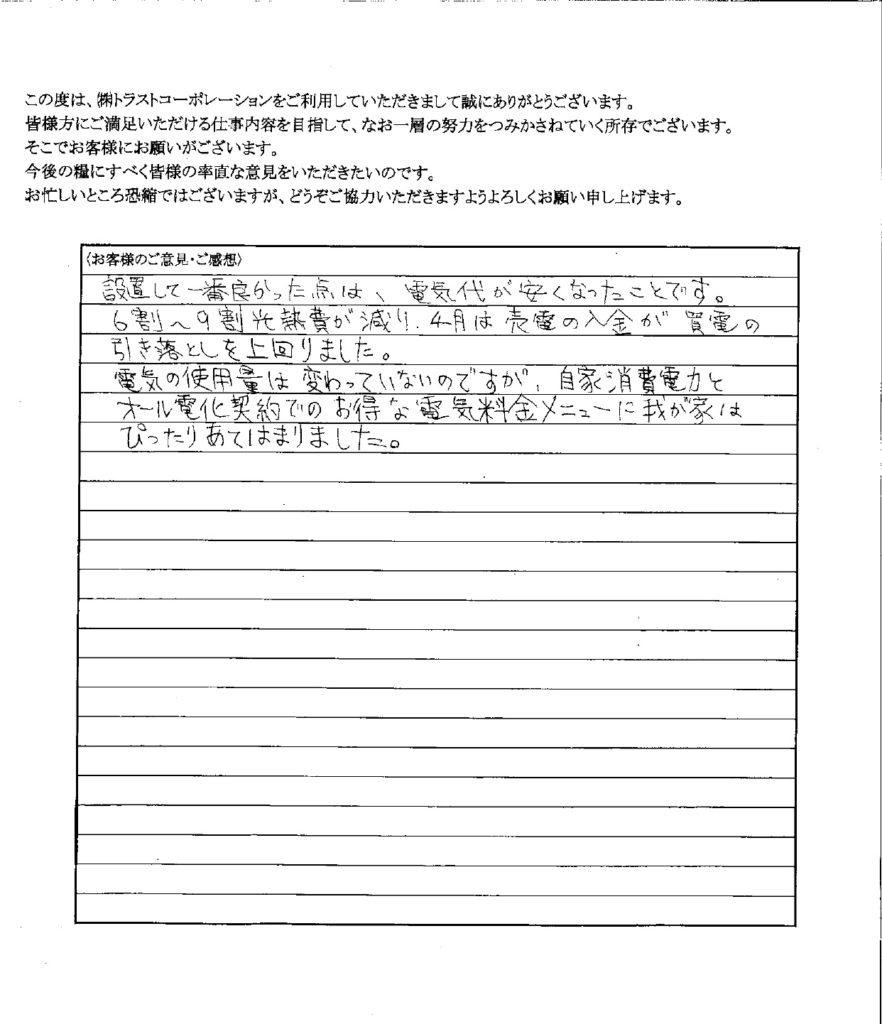 この度は、㈱トラストコーポレーションをご利用していただきまして誠にありがとうございます。
皆様方にご満足いただける仕事内容を目指して、なお一層の努力をつみかさねていく所存でございます。
そこでお客様にお願いがございます。
今後の糧にすべく皆様の率直な意見をいただきたいのです。
お忙しいところ恐縮ではございますが、どうぞご協力いただきますようよろしくお願い申し上げます。
〈お客様のご意見・ご感想〉
設置して一番良かった点は、電気代が安くなったことです。
6割〜9割光熱費が減り、4月は売電の入金が買電の
引き落としを上回りました。
電気の使用量は変わっていないのですが、自家消費電力と
オール電化契約でのお得な電気料金メニューに我が家は
ぴったりあてはまりました。